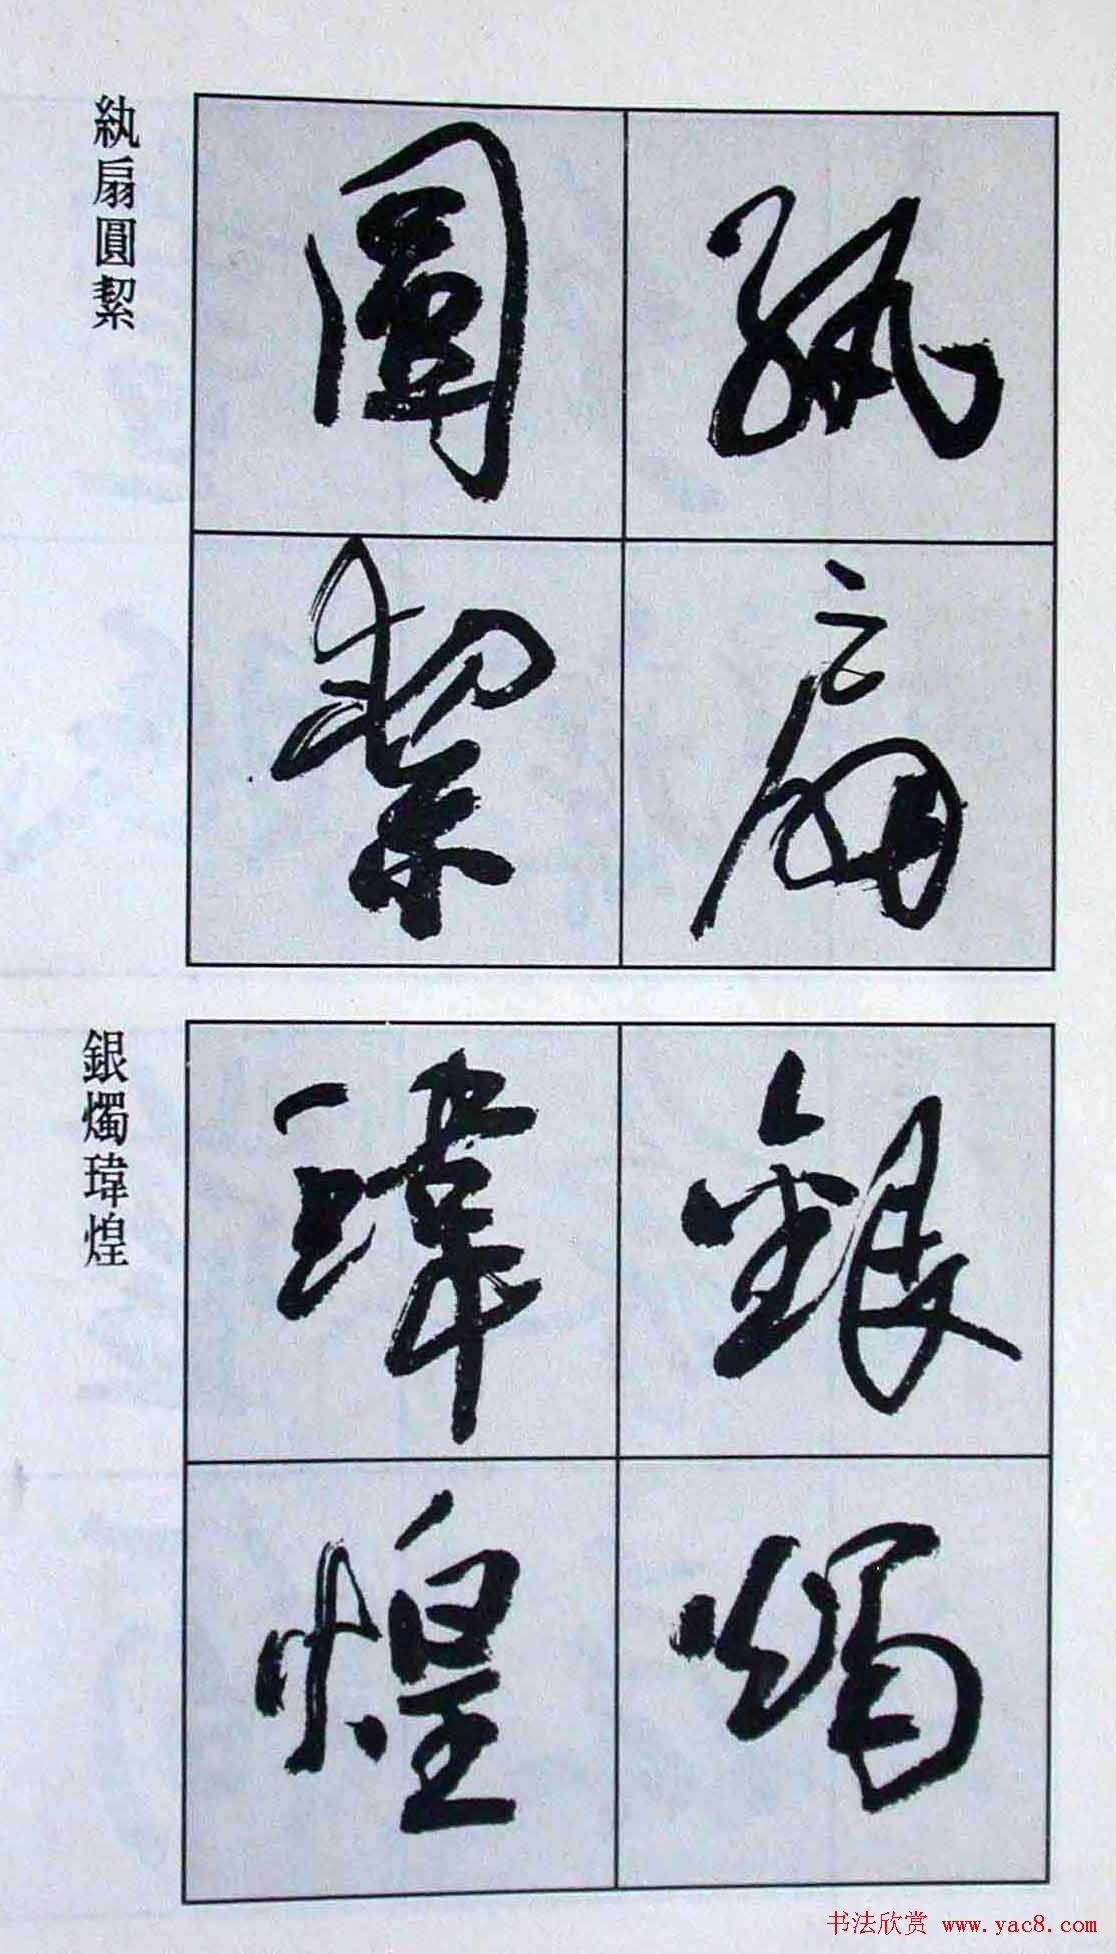 紈扇
圓絜
紈扇圓絜
銀燭
瑋煌
銀燭瑋煌
书法欣赏 www.yac8.com